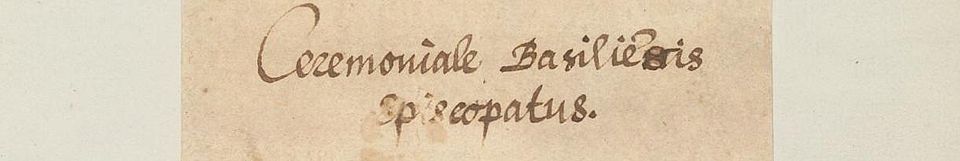 Ceremoniale Basiliēsis
Episcopatus.